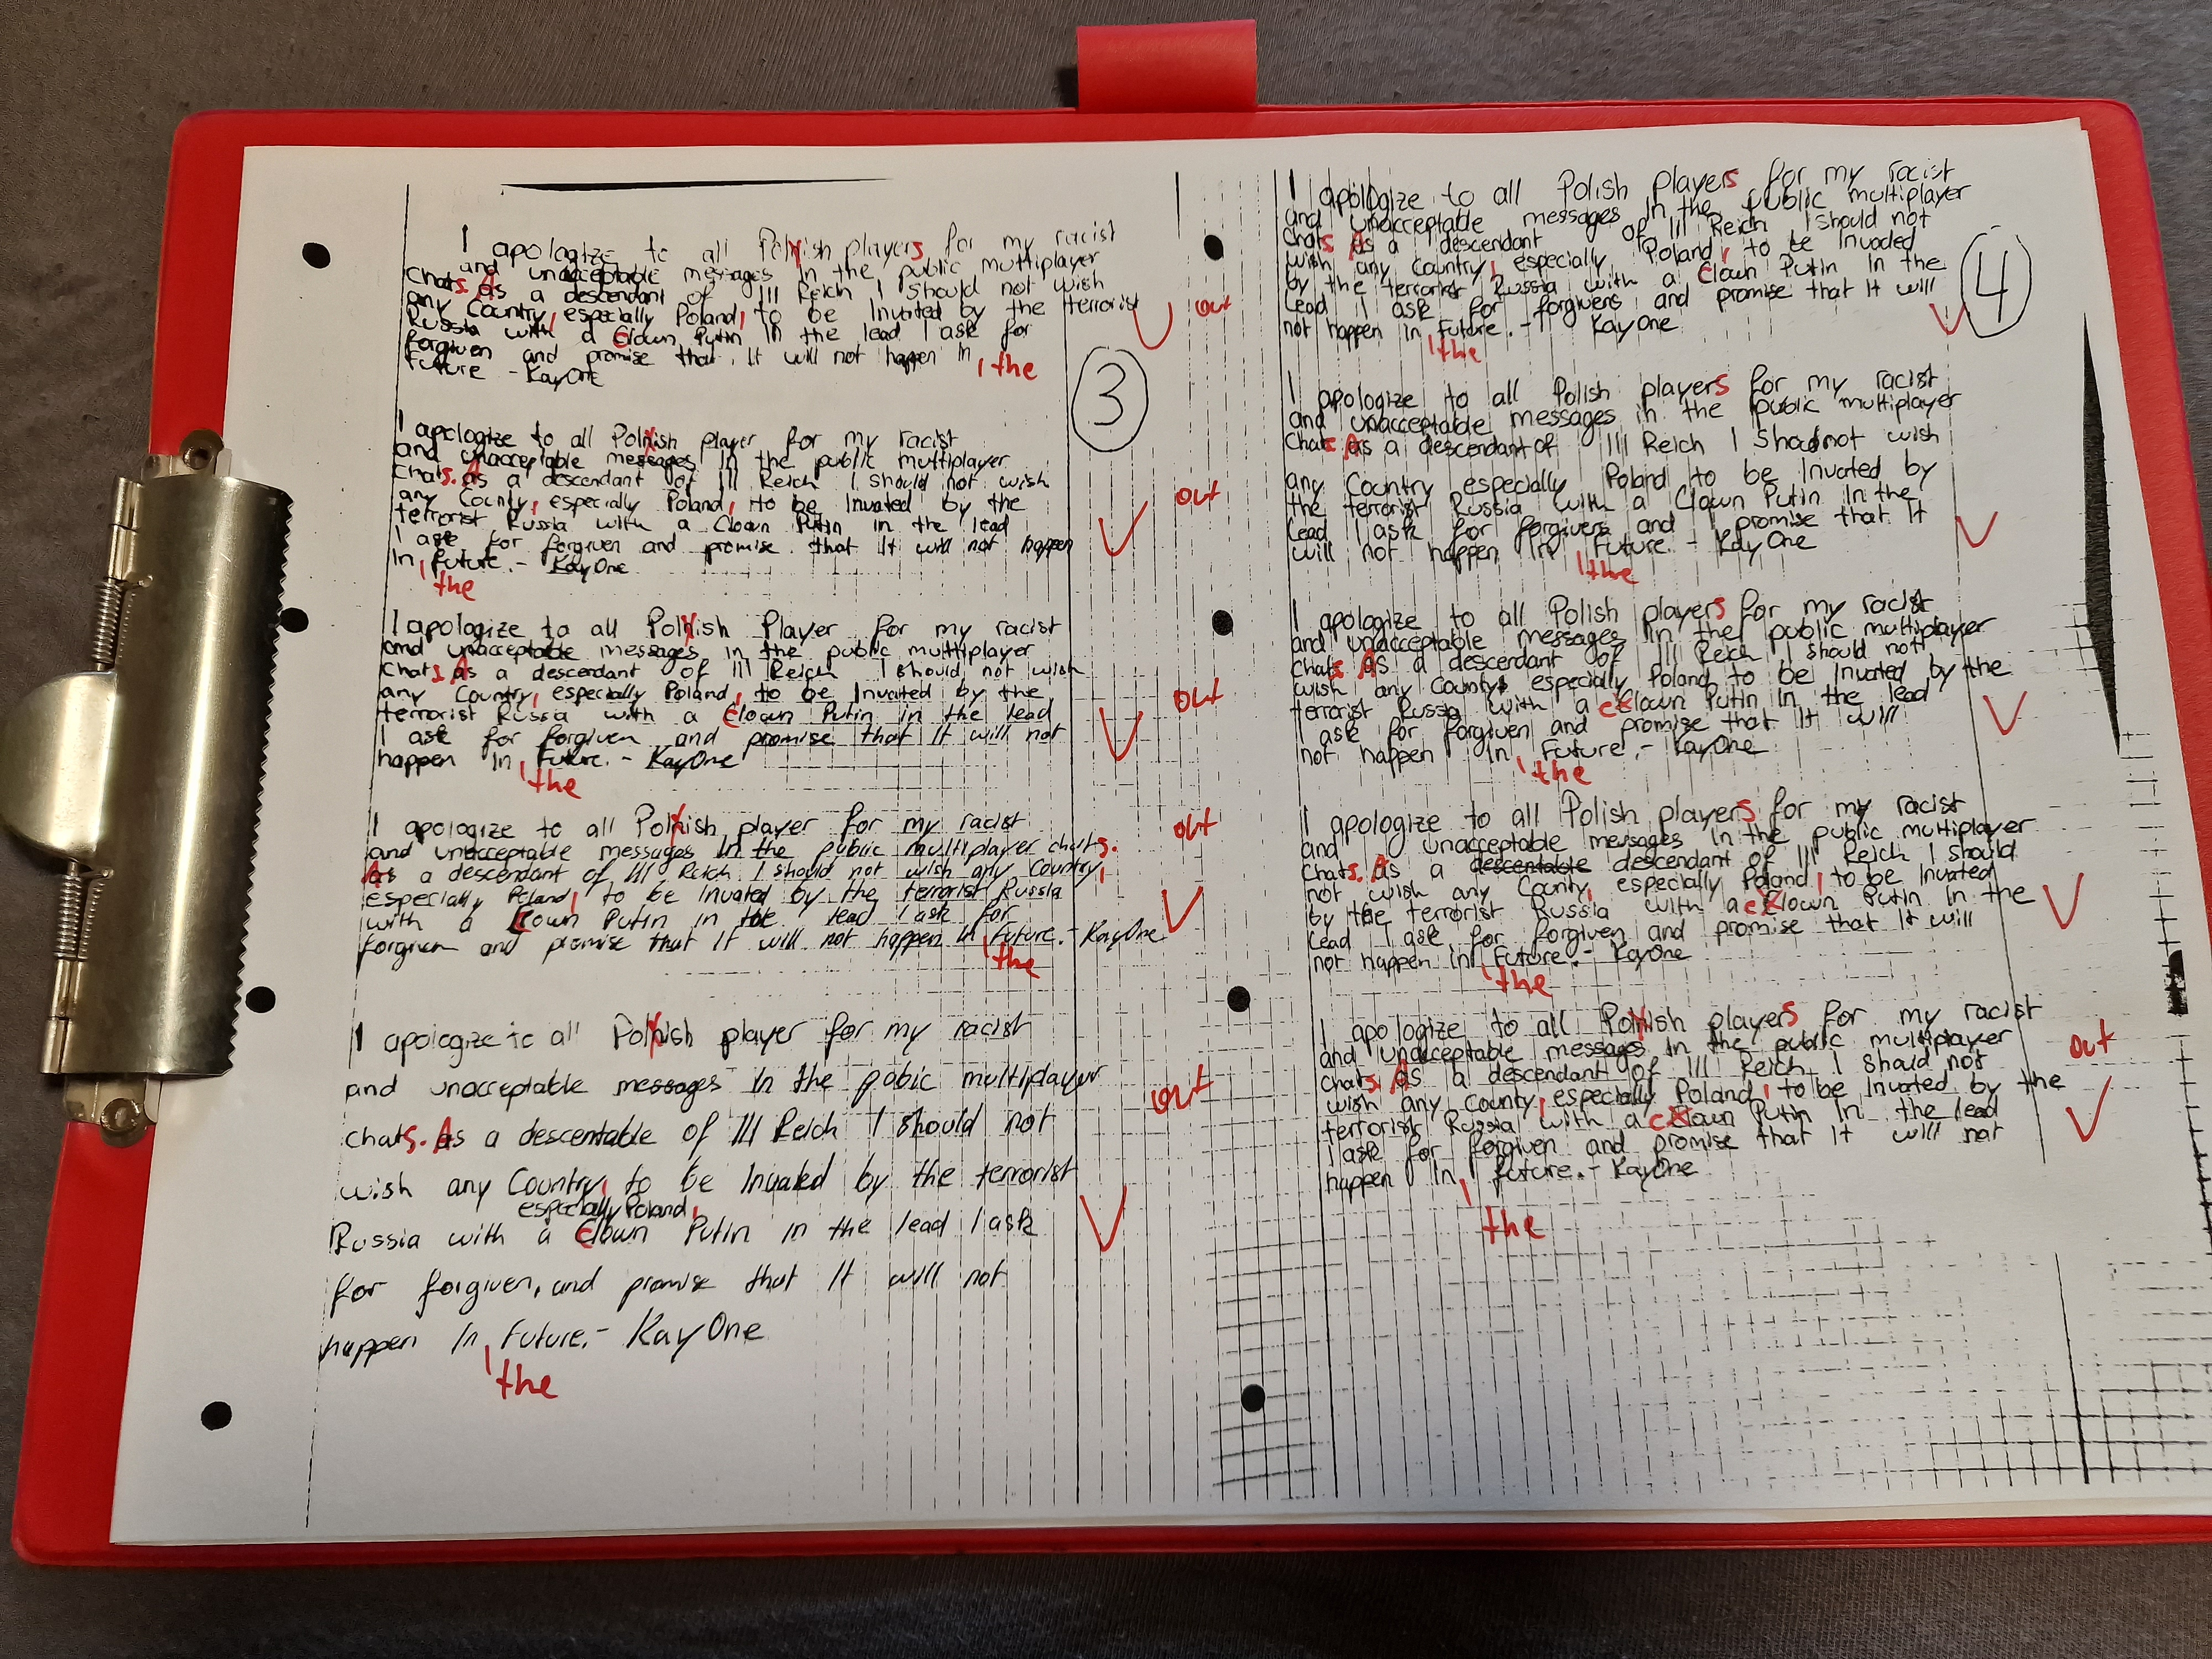 I apologize to all Polnish players for my racist
and unacceptable messages in the public multiplayer
Chats. As a descendant of III Reich I should not wish
any Country, especially Poland, to be Invated by the terrorist
Russia with a Clown Putin in the lead I ask for
forgiven and promise that It will not happen in the
Future - KayOne
out
3
I apologize to all Polnish player for my racist
and unacceptable messages in the public multiplayer
Chats. As a descendant of III Reich I should not wish
any County, especially Poland, to be Invated by the
terrorist Russia with a Clown Putin in the lead
I ask for forgiven and promise that It will not happen
In the Future. - KayOne
out
I apologize to all Polnish Player for my racist
and unacceptable messages in the public multiplayer
Chats As a descendant of III Reich I should not wish
any Country, especially Poland, to be Invated by the
terrorist Russia with a Clown Putin in the lead
I ask for forgiven and promise that It will not
happen In the Future. - KayOne
out
I apologize to all Polnish player for my racist
and unacceptable messages in the public multiplayer chats.
As a descendant of III Reich I should not wish any Country,
especially Poland, to be Invated by the terrorist Russia
with a Clown Putin in the lead I ask for
forgiven and promise that It will not happen in the Future. - KayOne
out
I apologize to all Polnish player for my racist
and unacceptable messages In the pobic multiplayer
chats. As a descentable of III Reich I should not
wish any Country, to be Invated by the terrorist
especially Poland,
Russia with a Clown Putin in the lead I ask
for forgiven, and promise that It will not
happen In the Future. - KayOne
out
I apologize to all Polish players for my racist
and unacceptable messages In the public multiplayer
Chats As a descendant of III Reich I should not
wish any Country, especially Poland, to be Invaded
by the terrorist Russia with a Clown Putin In the
Lead I ask for forgivens and promise that It will
not happen in the Future. - KayOne
4
I apologize to all Polish players for my racist
and unacceptable messages in the public multiplayer
Chats As a descendant of III Reich I Shoud not wish
any Country especially Poland to be Invated by
the terrorist Russia with a Clown Putin In the
Lead I ask for forgivers and I promise that It
will not happen In the Future. - KayOne
I apologize to all Polish players for my racist
and unacceptable messages in the public multiplayer
Chats As a descendant of III Reich I should not
wish any County especially Poland to be Invated by the
terrorist Russia with a Clown Putin In the lead
I ask for forgiven and promise that It will
not happen In the Future. - KayOne
I apologize to all Polish players for my racist
and unacceptable messages In the public multiplayer
Chats. As a descentable descendant of III Reich I should
not wish any County, especially Poland, to be Invated
by the terrorist Russia with a Clown Putin In the
Lead I ask for forgiven and promise that It will
not happen in the Future - KayOne
I apologize to all Polnish players for my racist
and unacceptable messages In the public multiplayer
Chats. As a descendant of III Reich I should not
wish any County, especially Poland, to be Invated by the
terrorist Russia with a Clown Putin In the lead
I ask for forgiven and promise that It will not
happen In the future. - KayOne
out